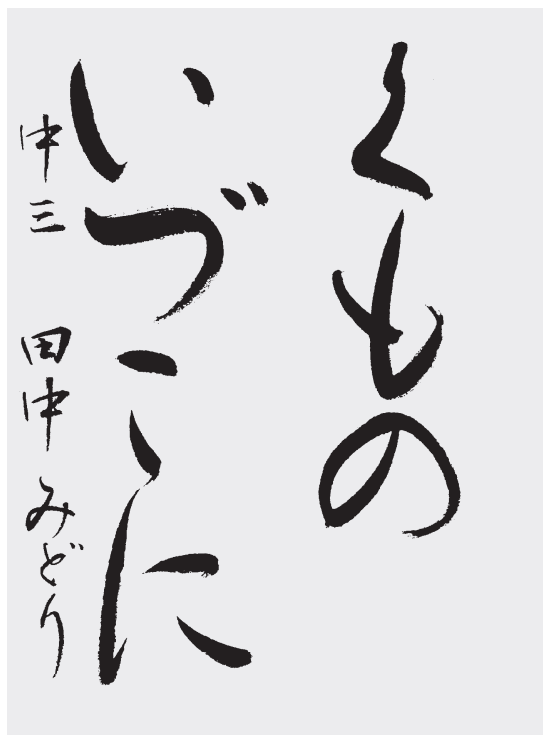 くもの
いづこに
中三 田中みどり